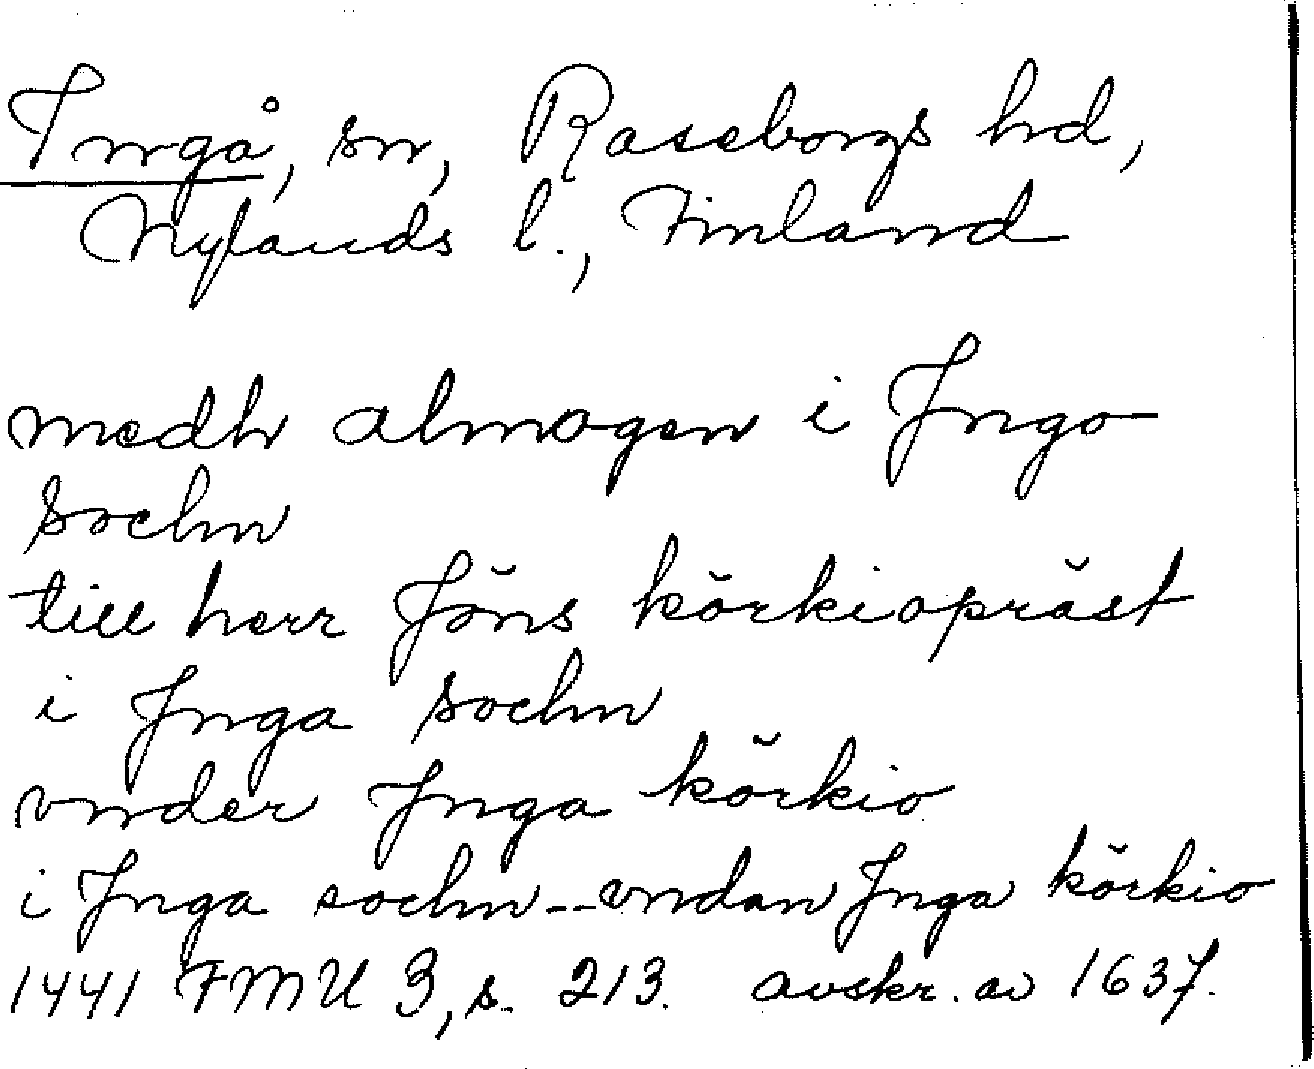 Ingå, sn, Raseborgs hd,
Nylands l., Finland
medh almogen i Jngo
sochn
till herr Jöns körkiopräst
i Jnga sochn
vnder Jnga körkio
i Jnga sochn -- vndan Jnga körkio
1441 FMU 3, s. 213. avskr. av 1637.